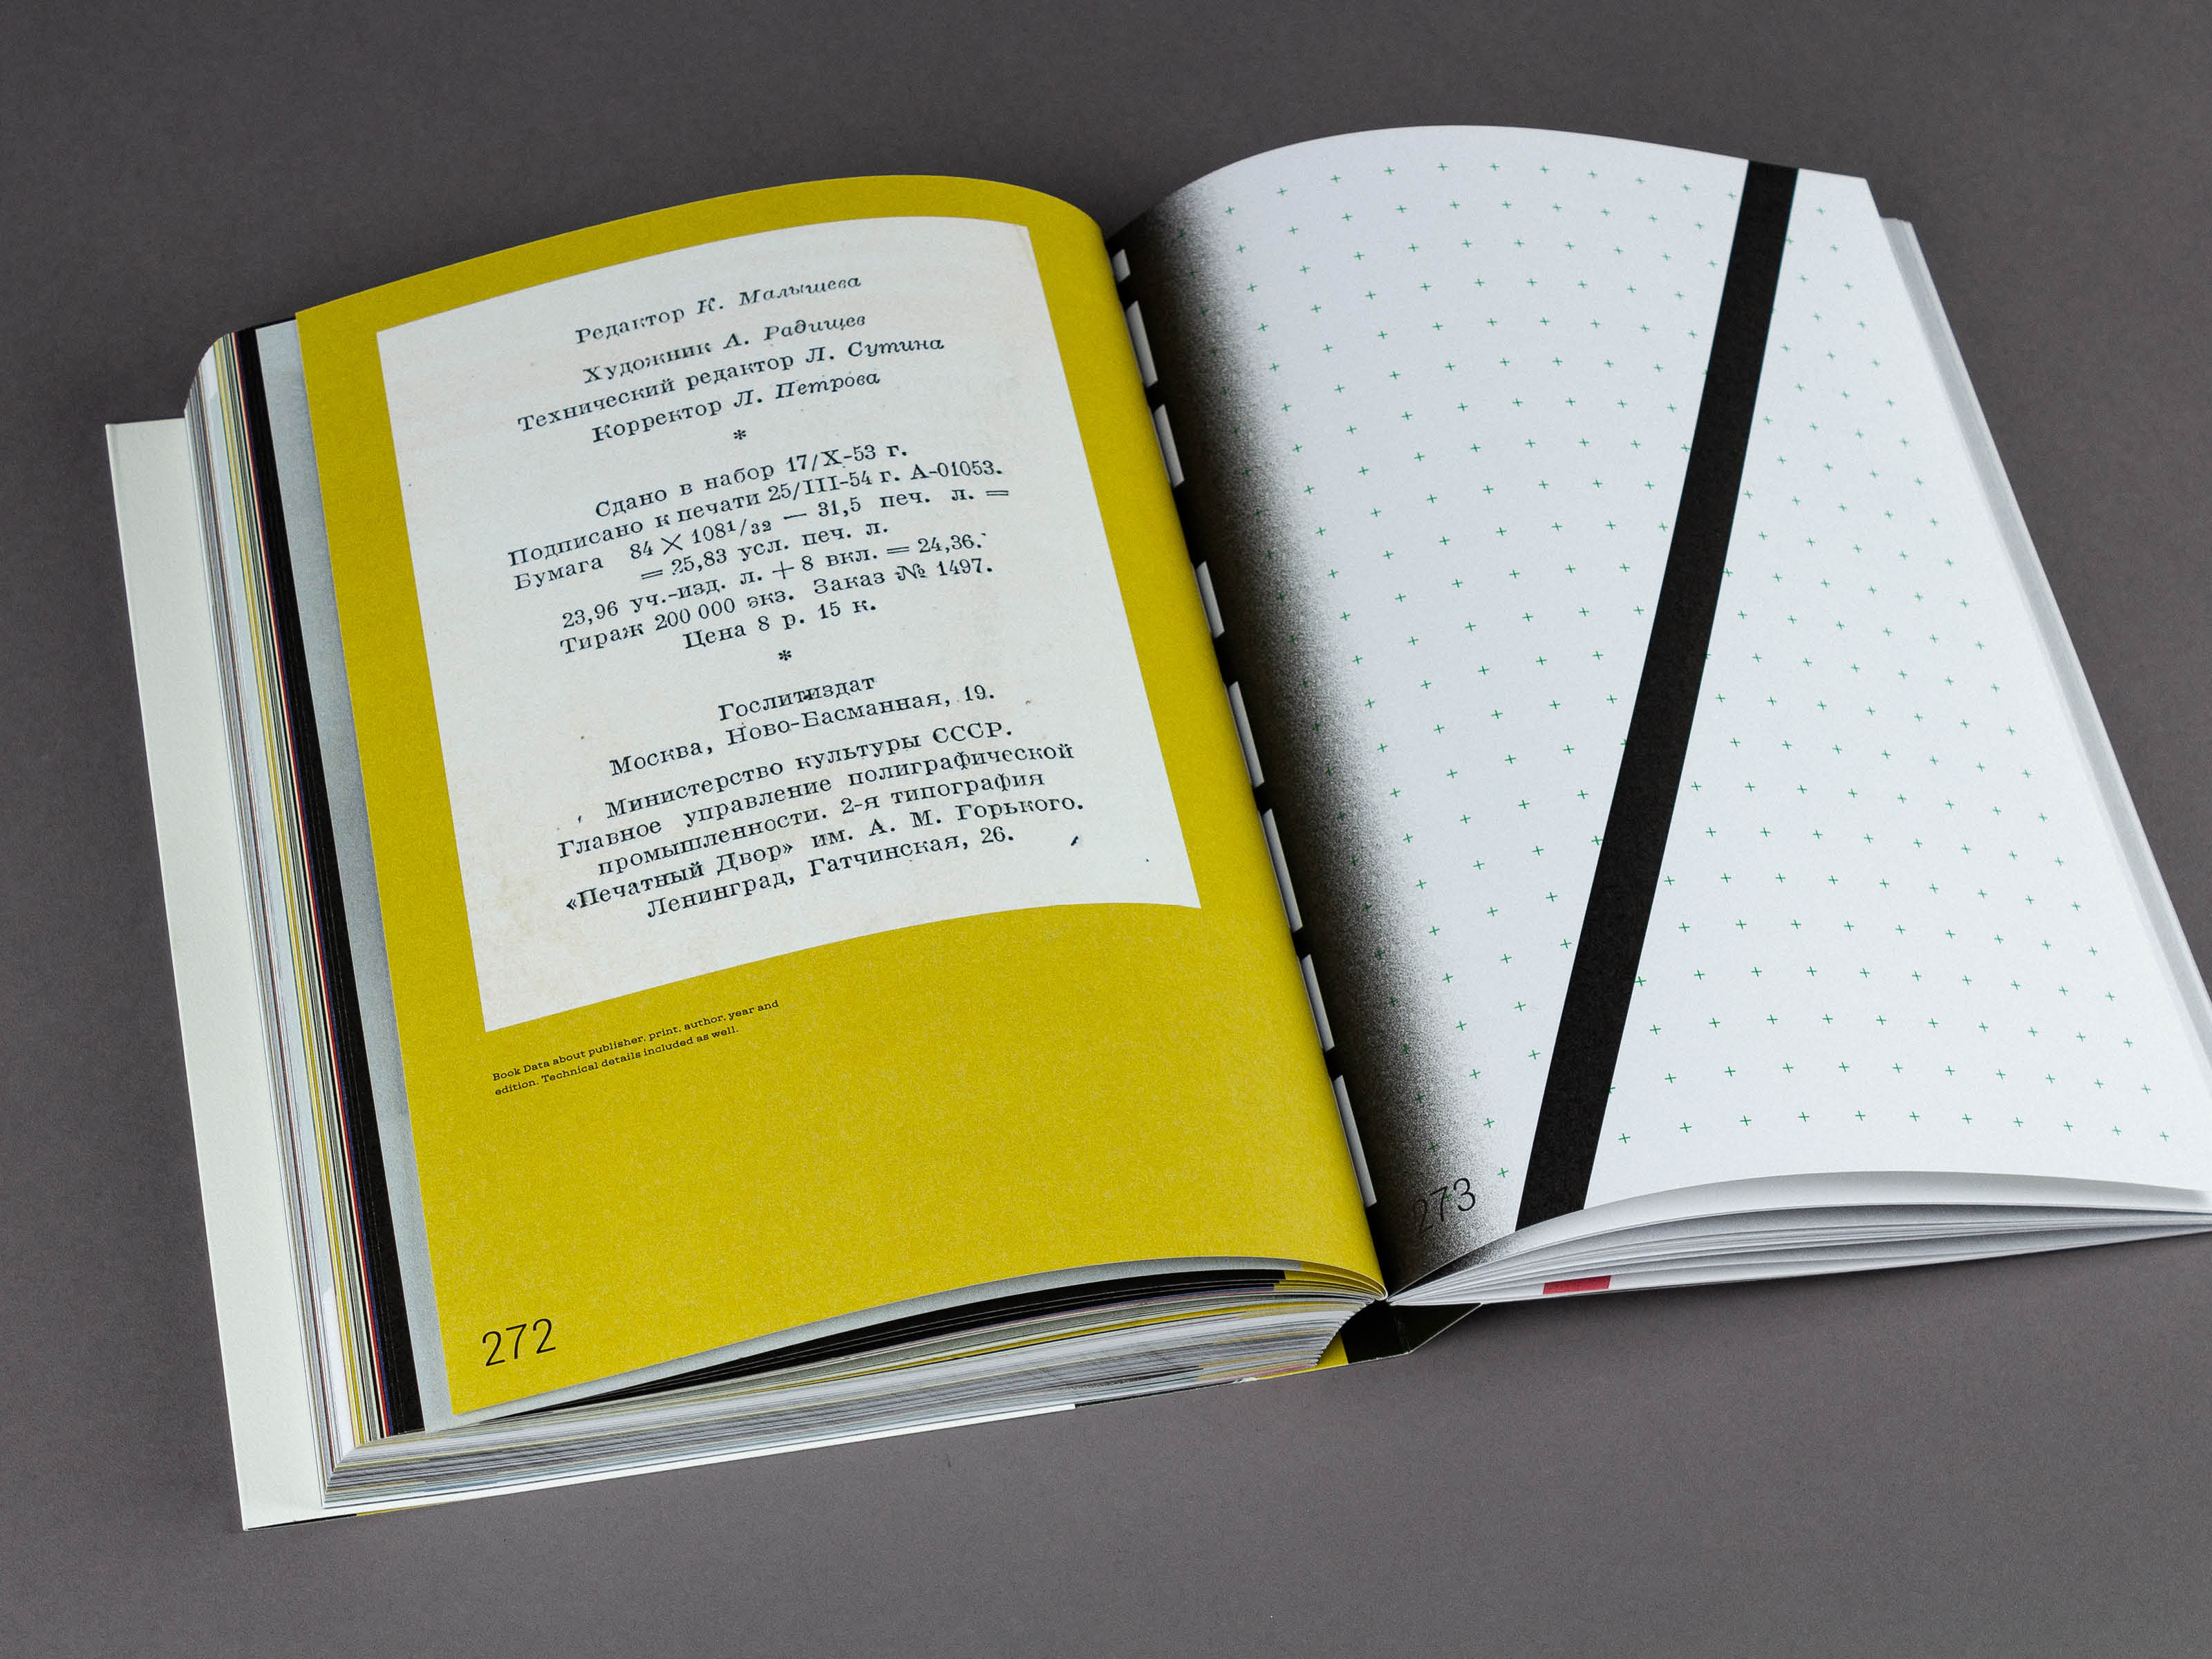 Редактор К. Малышева
Художник А. Радищев
Технический редактор Л. Сутина
Корректор Л. Петрова
*
Сдано в набор 17/X-53 г.
Подписано к печати 25/III-54 г. А-01053.
Бумага 84 × 108¹/₃₂ — 31,5 печ. л. =
= 25,83 усл. печ. л.
23,96 уч.-изд. л. + 8 вкл. = 24,36.
Тираж 200 000 экз. Заказ № 1497.
Цена 8 р. 15 к.
*
Гослитиздат
Москва, Ново-Басманная, 19.
Министерство культуры СССР.
Главное управление полиграфической
промышленности. 2-я типография
«Печатный Двор» им. А. М. Горького.
Ленинград, Гатчинская, 26.
Book Data about publisher, print, author, year and
edition. Technical details included as well.
272
273